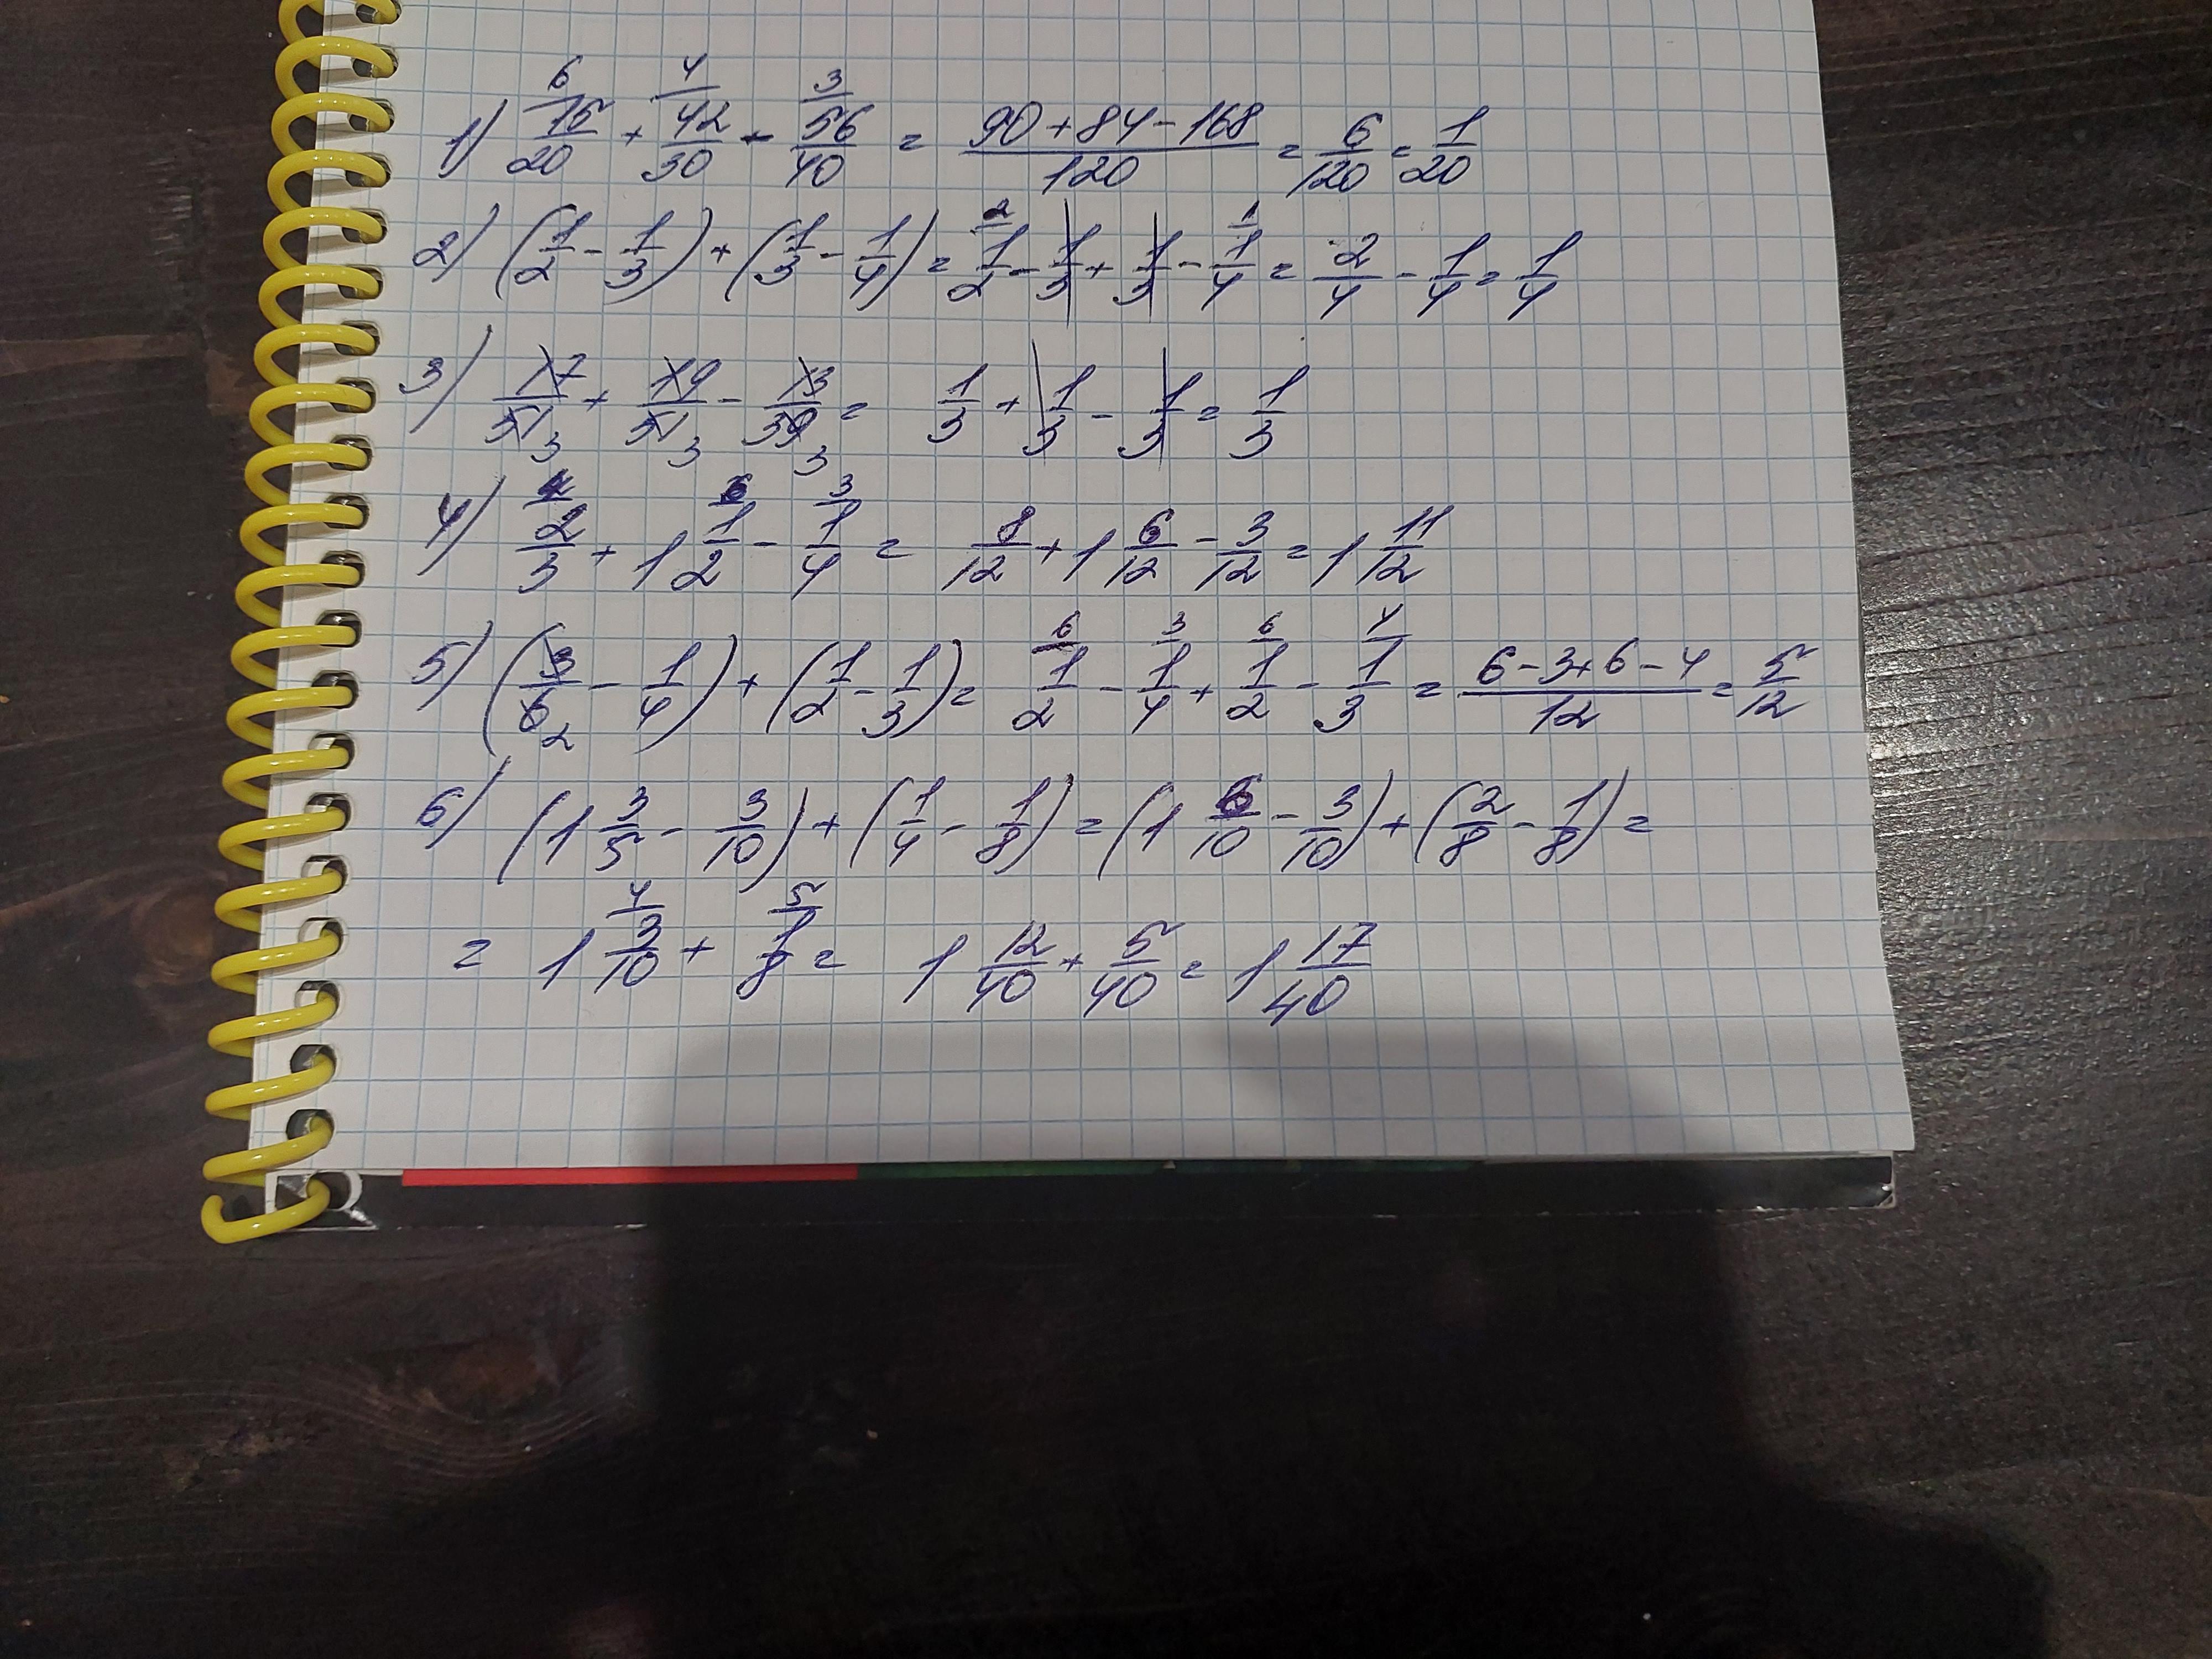 6 4 3
1) 15/20 + 42/30 - 56/40 = (90+84-168)/120 = 6/120 = 1/20
2 1
2) (1/2 - 1/3) + (1/3 - 1/4) = 1/2 - 1/3 + 1/3 - 1/4 = 2/4 - 1/4 = 1/4
3) 17/51 + 19/51 - 13/39 = 1/3 + 1/3 - 1/3 = 1/3
3 3 3
4 6 3
4) 2/3 + 1 1/2 - 1/4 = 8/12 + 1 6/12 - 3/12 = 1 11/12
6 3 6 4
5) (3/6 - 1/4) + (1/2 - 1/3) = 1/2 - 1/4 + 1/2 - 1/3 = (6-3+6-4)/12 = 5/12
2
6) (1 3/5 - 3/10) + (1/4 - 1/8) = (1 6/10 - 3/10) + (2/8 - 1/8) =
4 5
= 1 3/10 + 1/8 = 1 12/40 + 5/40 = 1 17/40